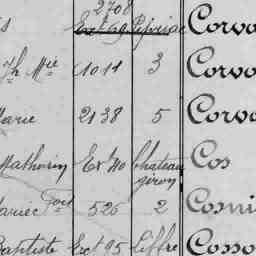 2708
s Ext 69 Corvo
Jh Mié 1011 3 Corvo
Marie 2138 5 Corvo
Mathurin Ext 40 Chateau Cos
giron
Mariec Fois 526 2 Cosni
Baptiste Ext 95 Liffré Cosso